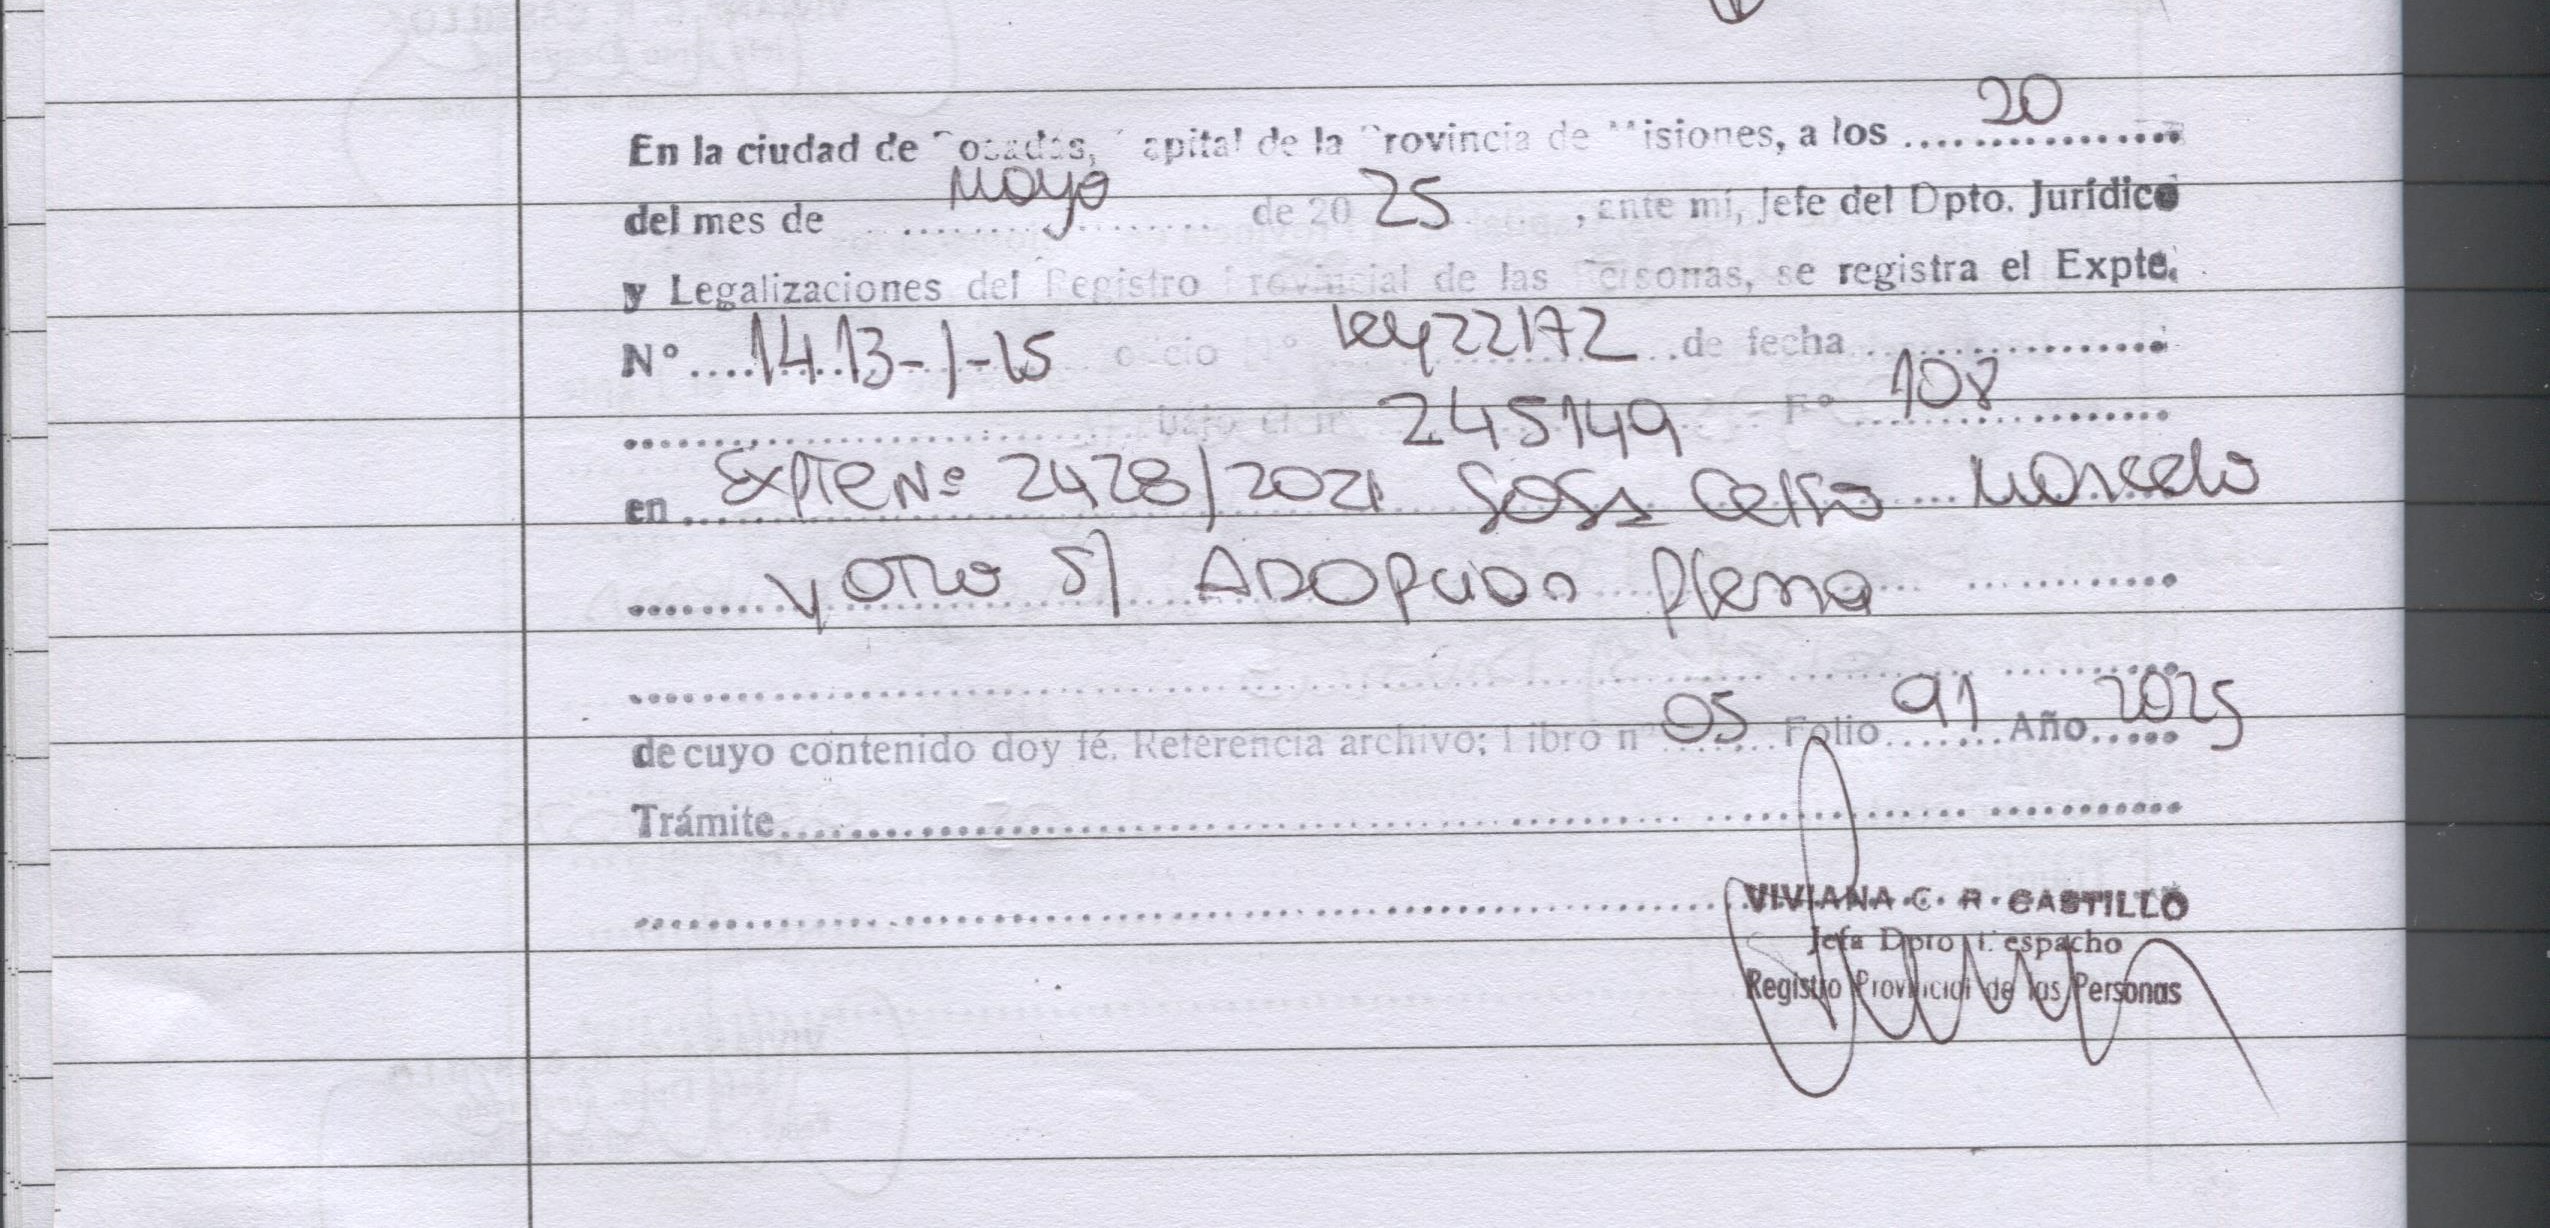 En la ciudad de Posadas, Capital de la Provincia de Misiones, a los 20
del mes de Mayo de 20 25, ante mí, Jefe del Dpto. Jurídico
y Legalizaciones del Registro Provincial de las Personas, se registra el Expte.
N° 1413-1-15 oficio N° ley 22172 de fecha
bajo el n° 245149 F° 108
en Expte Nº 2428/2021 Sosa Celso Marcelo
y otro s/ Adopcion Plena
de cuyo contenido doy fé. Referencia archivo: Libro n° 05 Folio 91 Año 2025
Trámite
VIVIANA C. R. CASTILLO
Jefa Dpto Despacho
Registro Provincial de las Personas